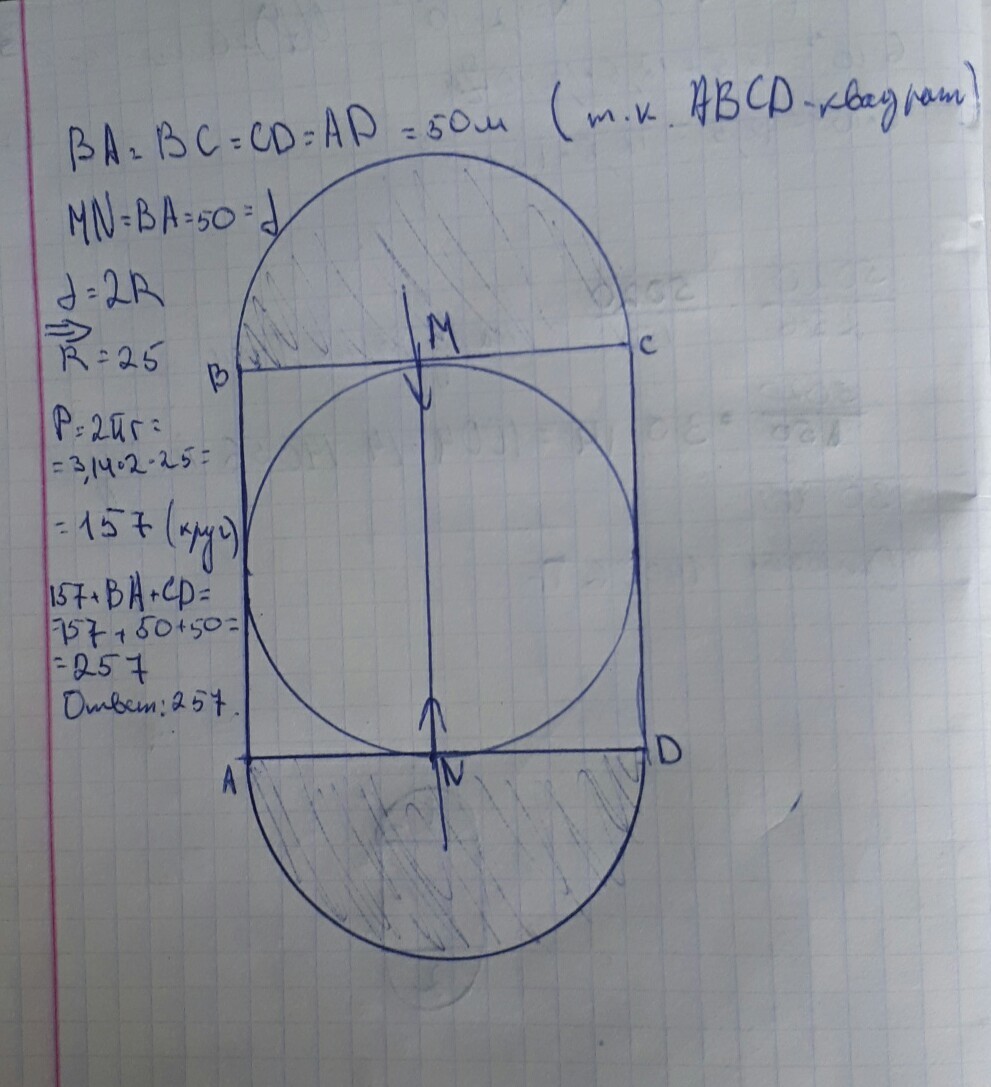 BA = BC = CD = AD = 50м (т.к. ABCD - квадрат)
MN = BA = 50 = d
d = 2R
⇒
R = 25
P = 2πr =
= 3,14·2·25 =
= 157 (круг)
157 + BA + CD =
= 157 + 50 + 50 =
= 257
Ответ: 257.
M
B
C
A
N
D